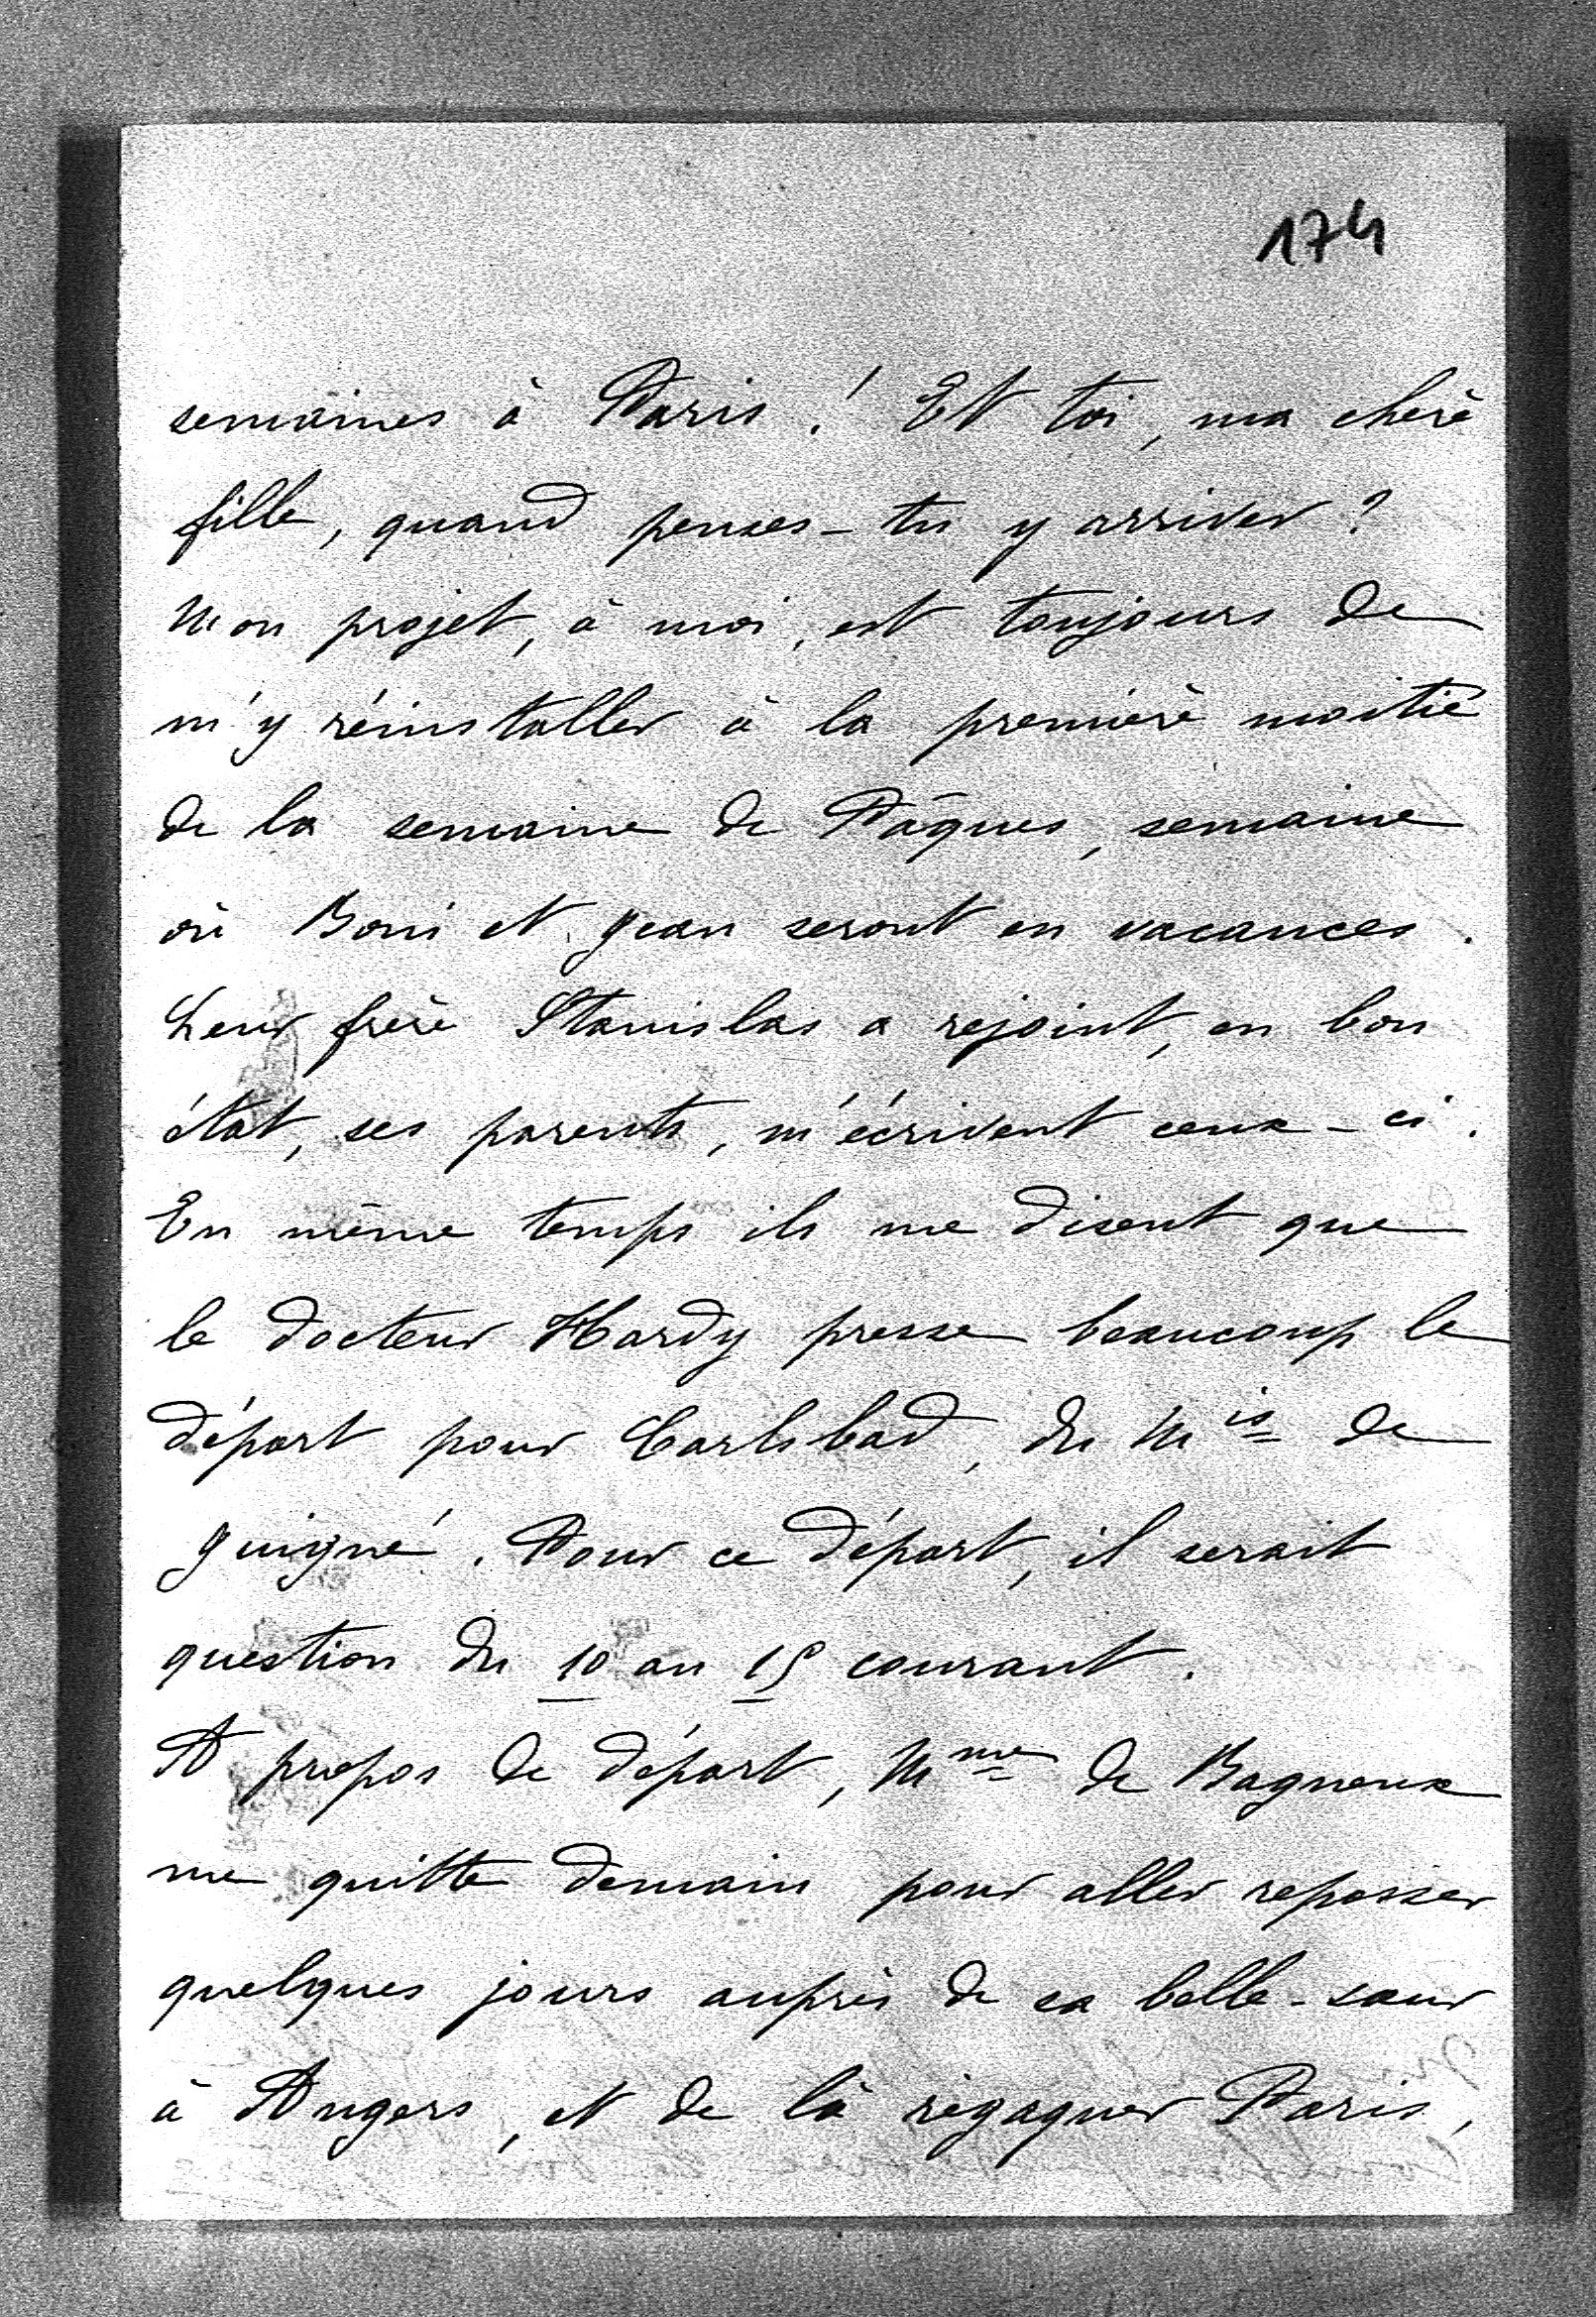 174
semaines à Paris ! Et toi, ma chère
fille, quand penses-tu y arriver ?
Mon projet, à moi, est toujours de
m'y réinstaller à la première moitié
de la semaine de Pâques, semaine
où Boni et Jean seront en vacances.
Leur frère Stanislas a rejoint, en bon
état, ses parents, m'écrivent ceux-ci.
En même temps ils me disent que
le docteur Hardy presse beaucoup le
départ pour Carlsbad, du Mis de
Guigné. Pour ce départ, il serait
question du 10 au 15 courant.
A propos de départ, Mme de Bagneux
me quitte demain pour aller repasser
quelques jours auprès de sa belle-sœur
à Angers, et de là regagner Paris,